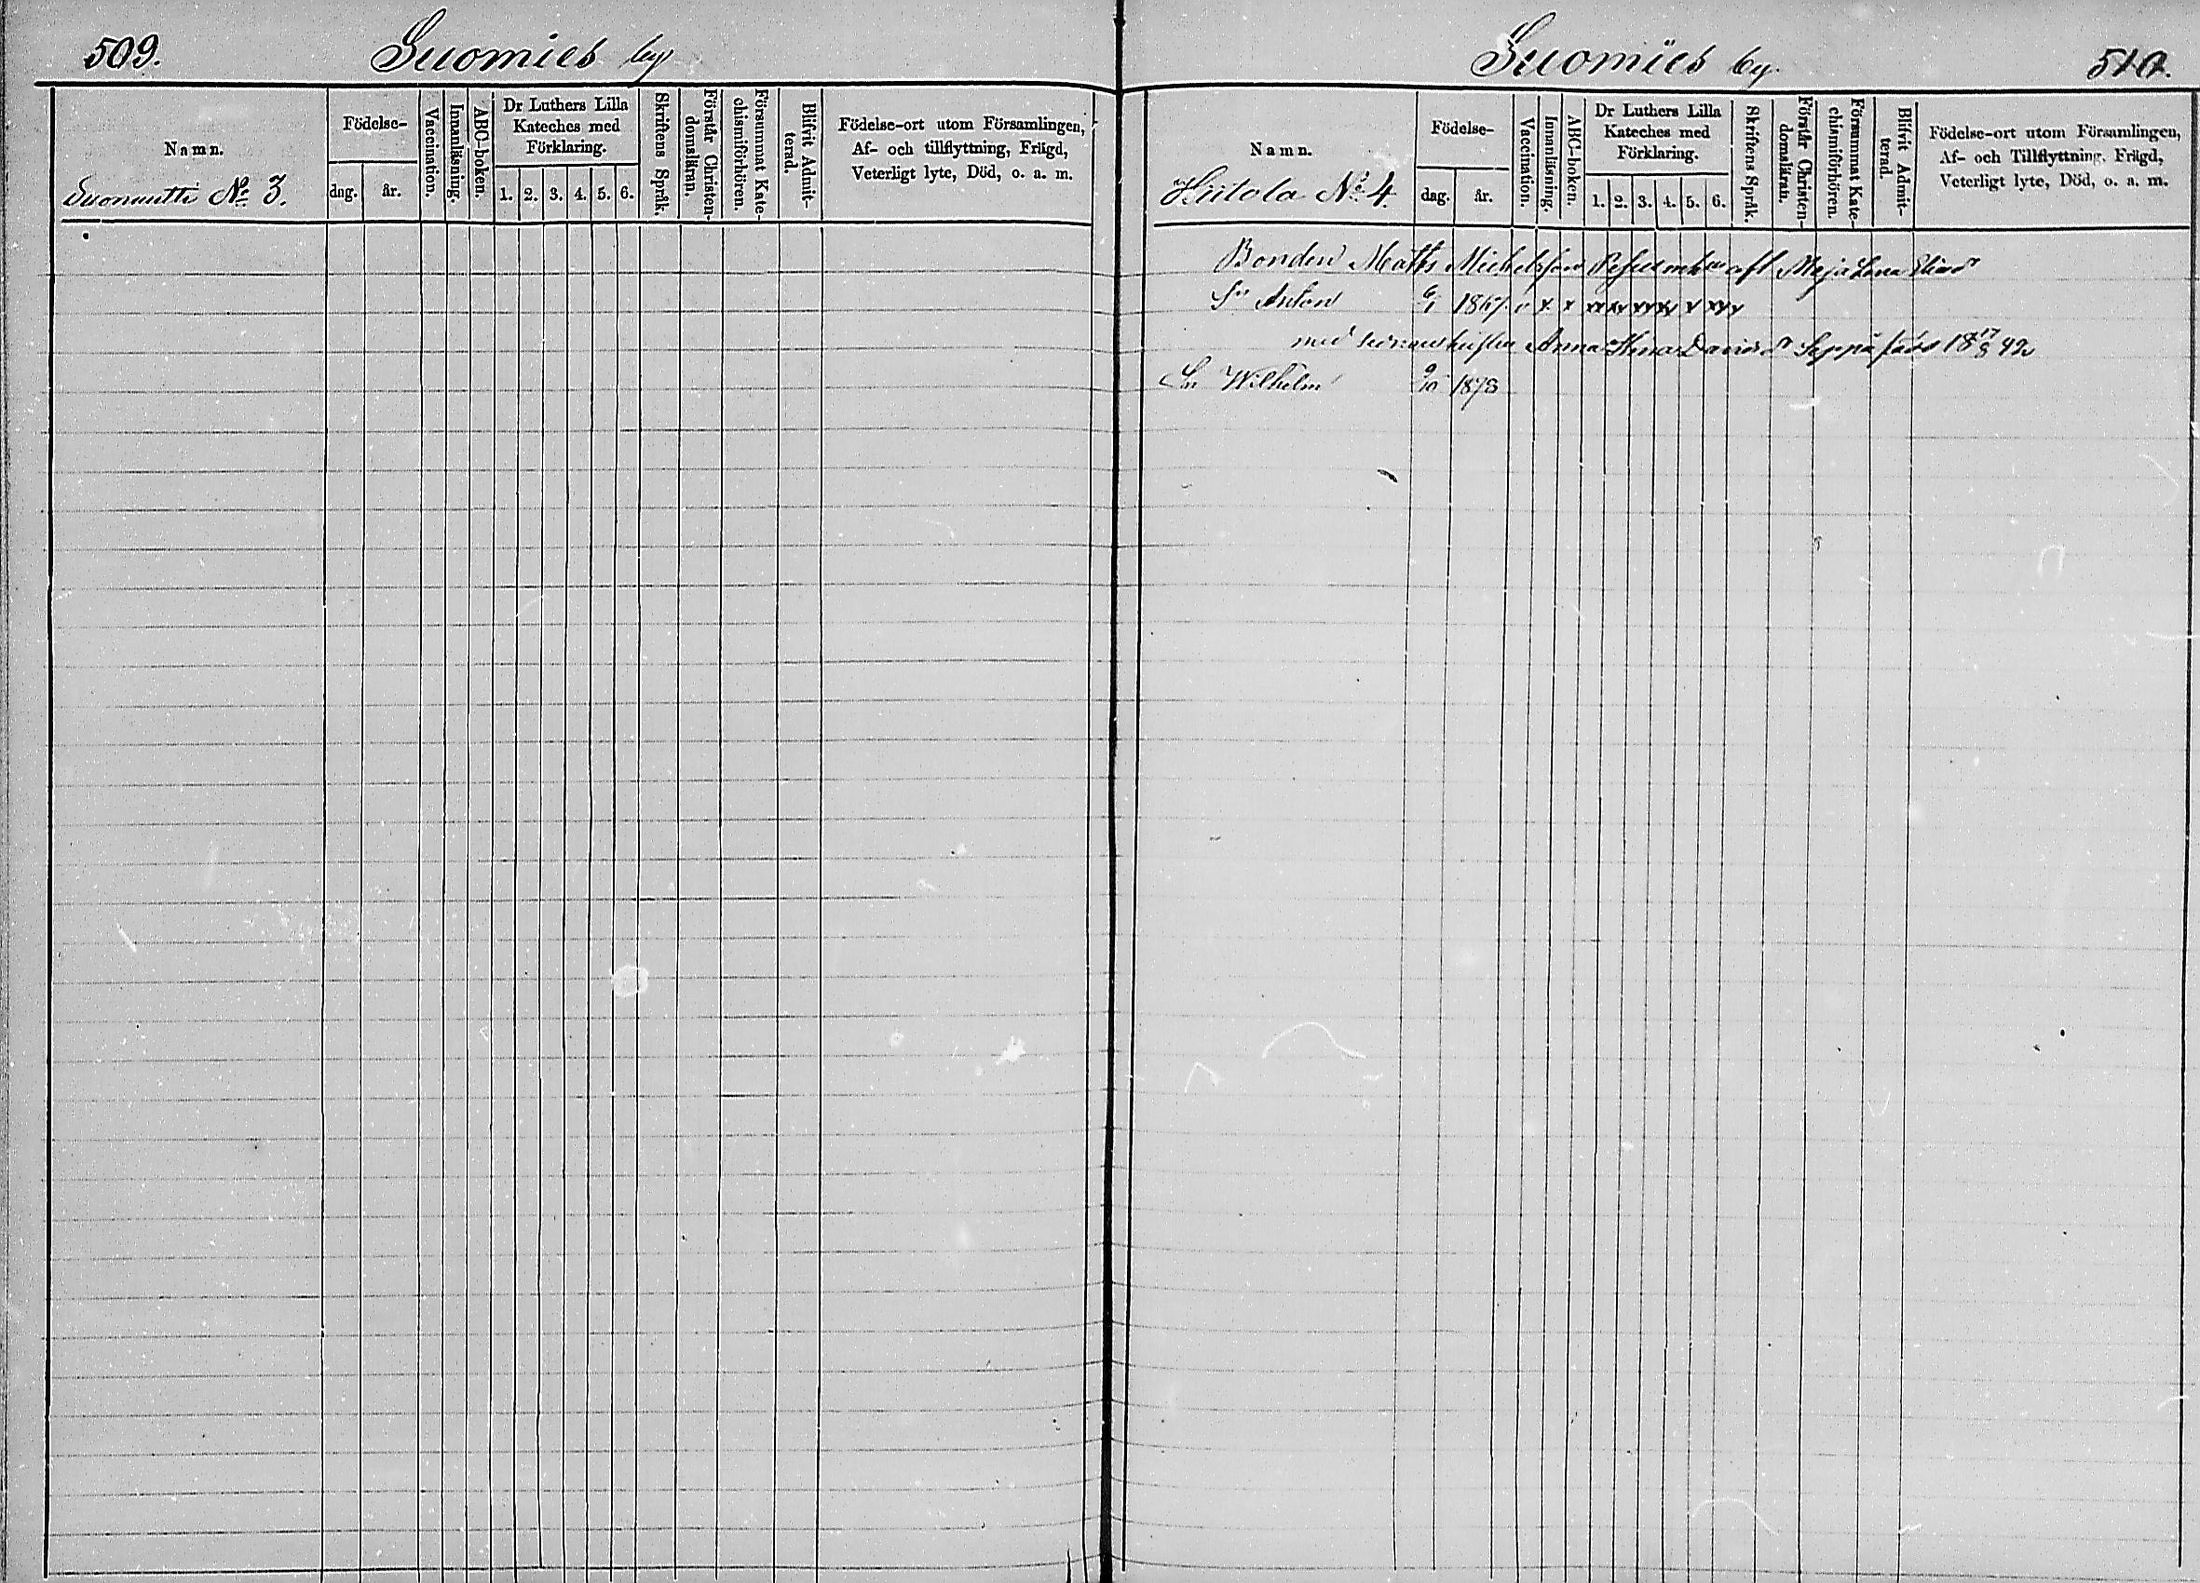 509.
Suomies by
Namn.
Födelse-
dag.
år.
Vaccination.
Innanläsning.
ABC-boken.
Dr Luthers Lilla
Kateches med
Förklaring.
1. 2. 3. 4. 5. 6.
Skriftens Språk.
Förstår Christen-
domsläran.
Försummat Kate-
chismiförhören.
Blifvit Admit-
terad.
Födelse-ort utom Församlingen,
Af- och tillflyttning, Frägd,
Veterligt lyte, Död, o. a. m.
No 3.
Suomies by.
510.
Namn.
Hiitola No 4.
Födelse-
dag.
år.
Vaccination.
Innanläsning.
ABC-boken.
Dr Luthers Lilla
Kateches med
Förklaring.
1. 2. 3. 4. 5. 6.
Skriftens Språk.
Förstår Christen-
domsläran.
Försummat Kate-
chismiförhören.
Blifvit Admit-
terad.
Födelse-ort utom Församlingen,
Af- och Tillflyttning, Frägd,
Veterligt lyte, Död, o. a. m.
Bonden Matts Michelsson afl Maja Lena
Sn Anton 6/1 1867
med Anna Davidsdr Seppä född 18 17/8 42
Sn Wilhelm 9/10 1878